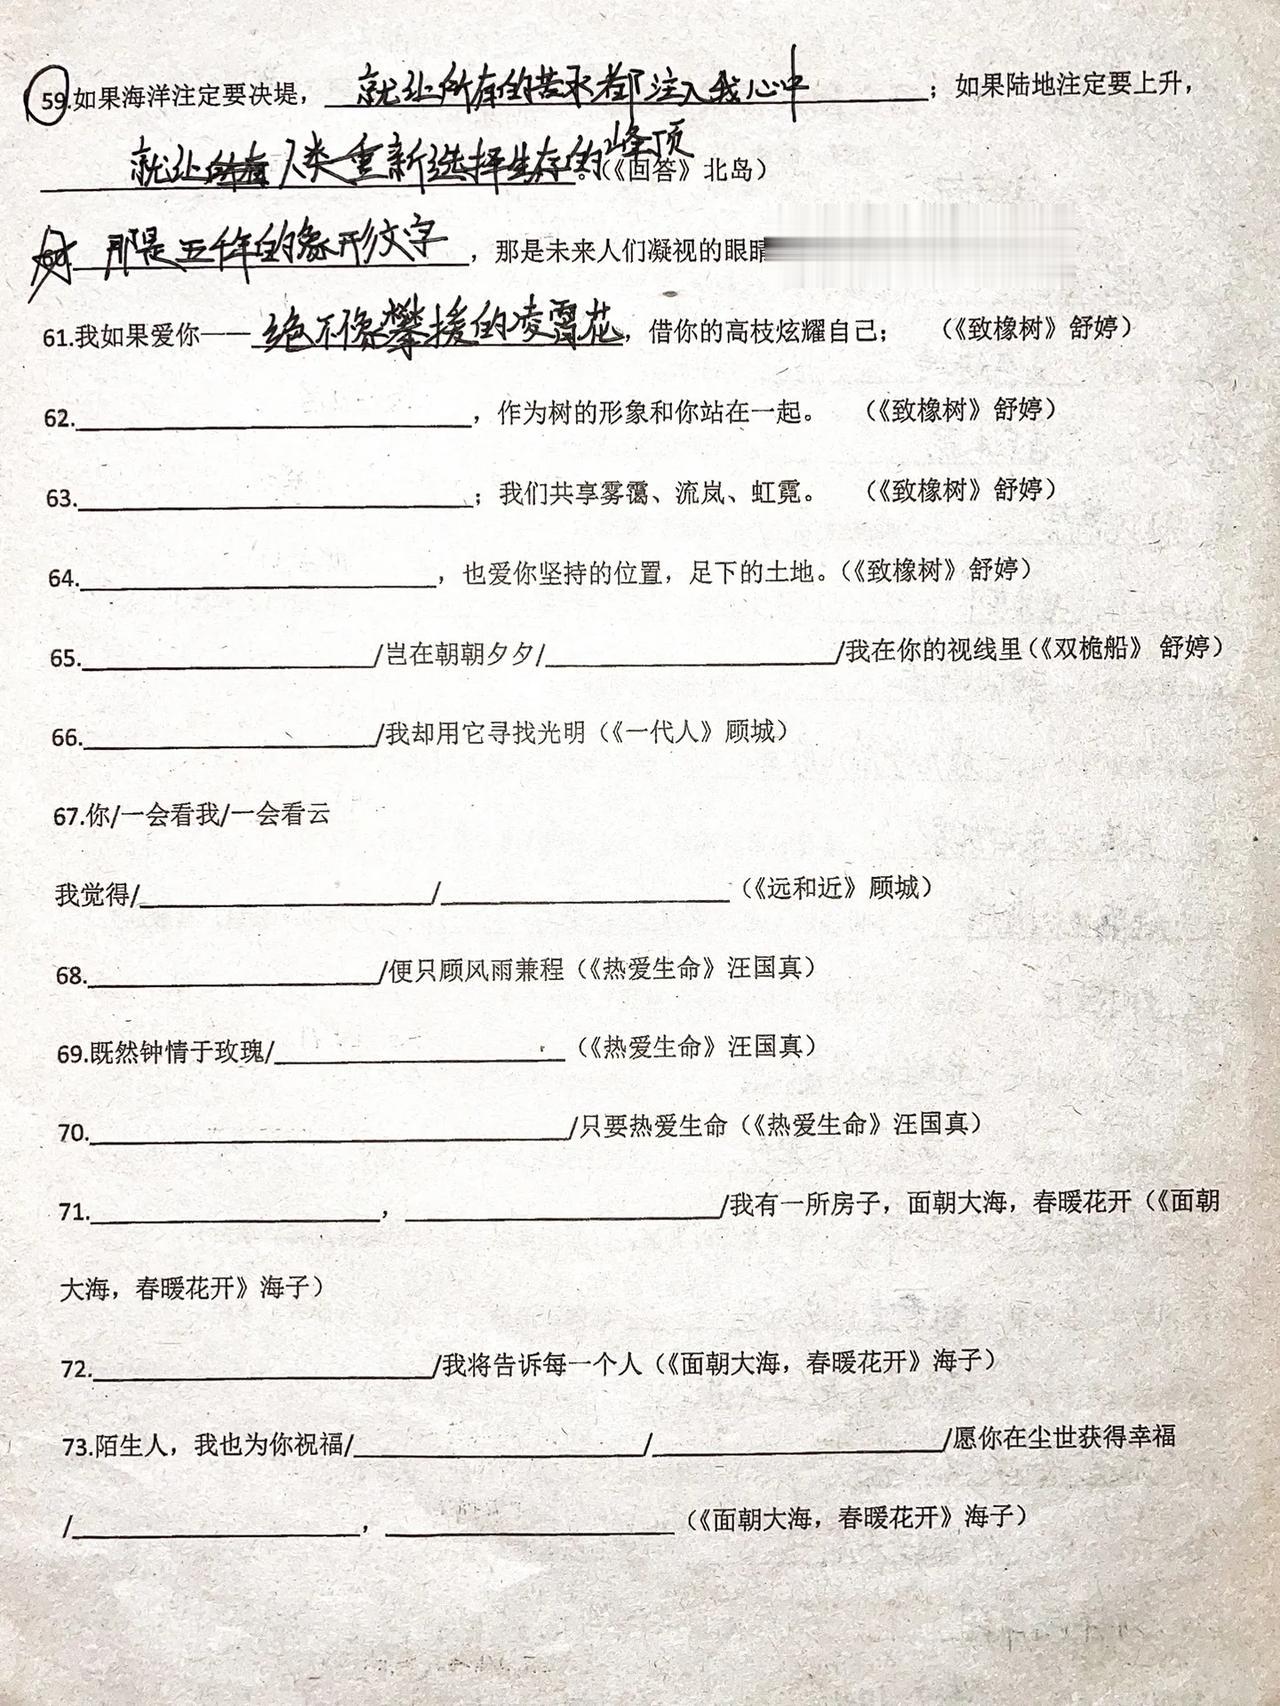 59.如果海洋注定要决堤，就让所有的苦水都注入我心中；如果陆地注定要上升，
就让人类重新选择生存的峰顶。（《回答》北岛）
60.那是五千年的象形文字，那是未来人们凝视的眼睛
61.我如果爱你——绝不像攀援的凌霄花，借你的高枝炫耀自己；（《致橡树》舒婷）
62.____，作为树的形象和你站在一起。（《致橡树》舒婷）
63.____；我们共享雾霭、流岚、虹霓。（《致橡树》舒婷）
64.____，也爱你坚持的位置，足下的土地。（《致橡树》舒婷）
65.____/岂在朝朝夕夕/____/我在你的视线里（《双桅船》 舒婷）
66.____/我却用它寻找光明（《一代人》顾城）
67.你/一会看我/一会看云
我觉得/____/____（《远和近》顾城）
68.____/便只顾风雨兼程（《热爱生命》汪国真）
69.既然钟情于玫瑰/____（《热爱生命》汪国真）
70.____/只要热爱生命（《热爱生命》汪国真）
71.____，____/我有一所房子，面朝大海，春暖花开（《面朝
大海，春暖花开》海子）
72.____/我将告诉每一个人（《面朝大海，春暖花开》海子）
73.陌生人，我也为你祝福/____/____/愿你在尘世获得幸福
/____，____（《面朝大海，春暖花开》海子）